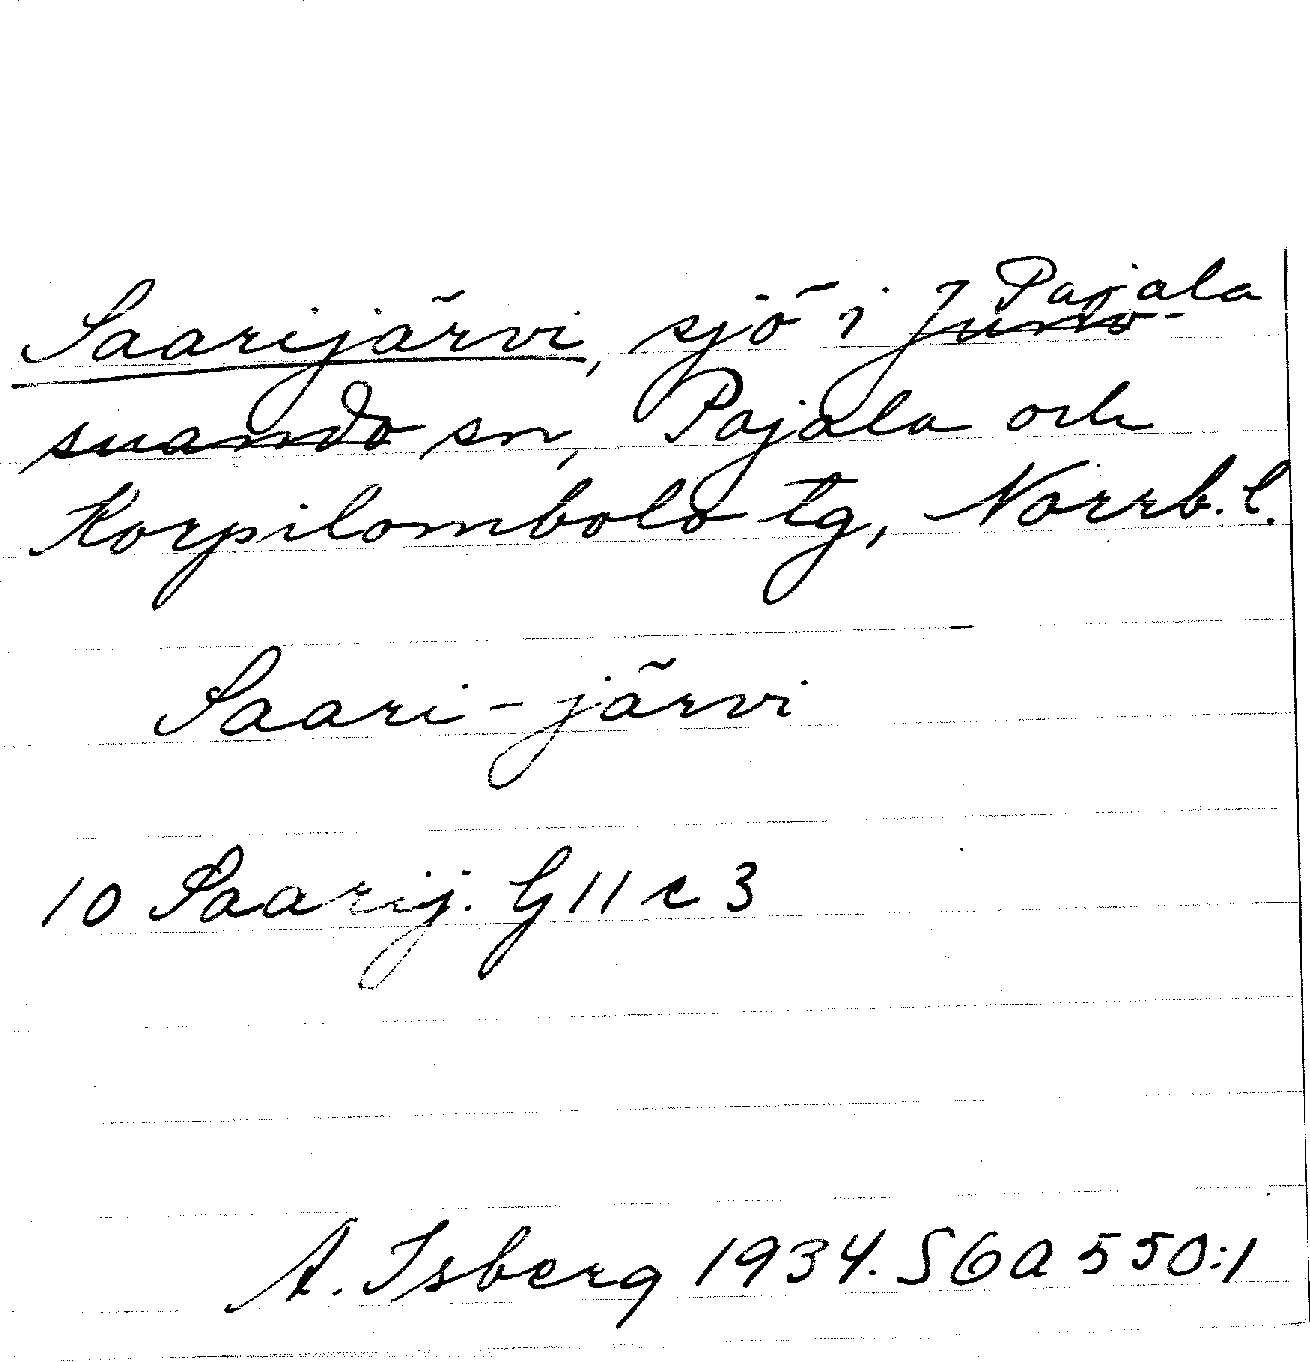 Saarijärvi, sjö i Juno- Pajala
suando sn, Pajala och
Korpilombolo tg, Norrb. l.
Saari-järvi
10 Saarij. G 11 c 3
A. Isberg 1934. SGA 550:1